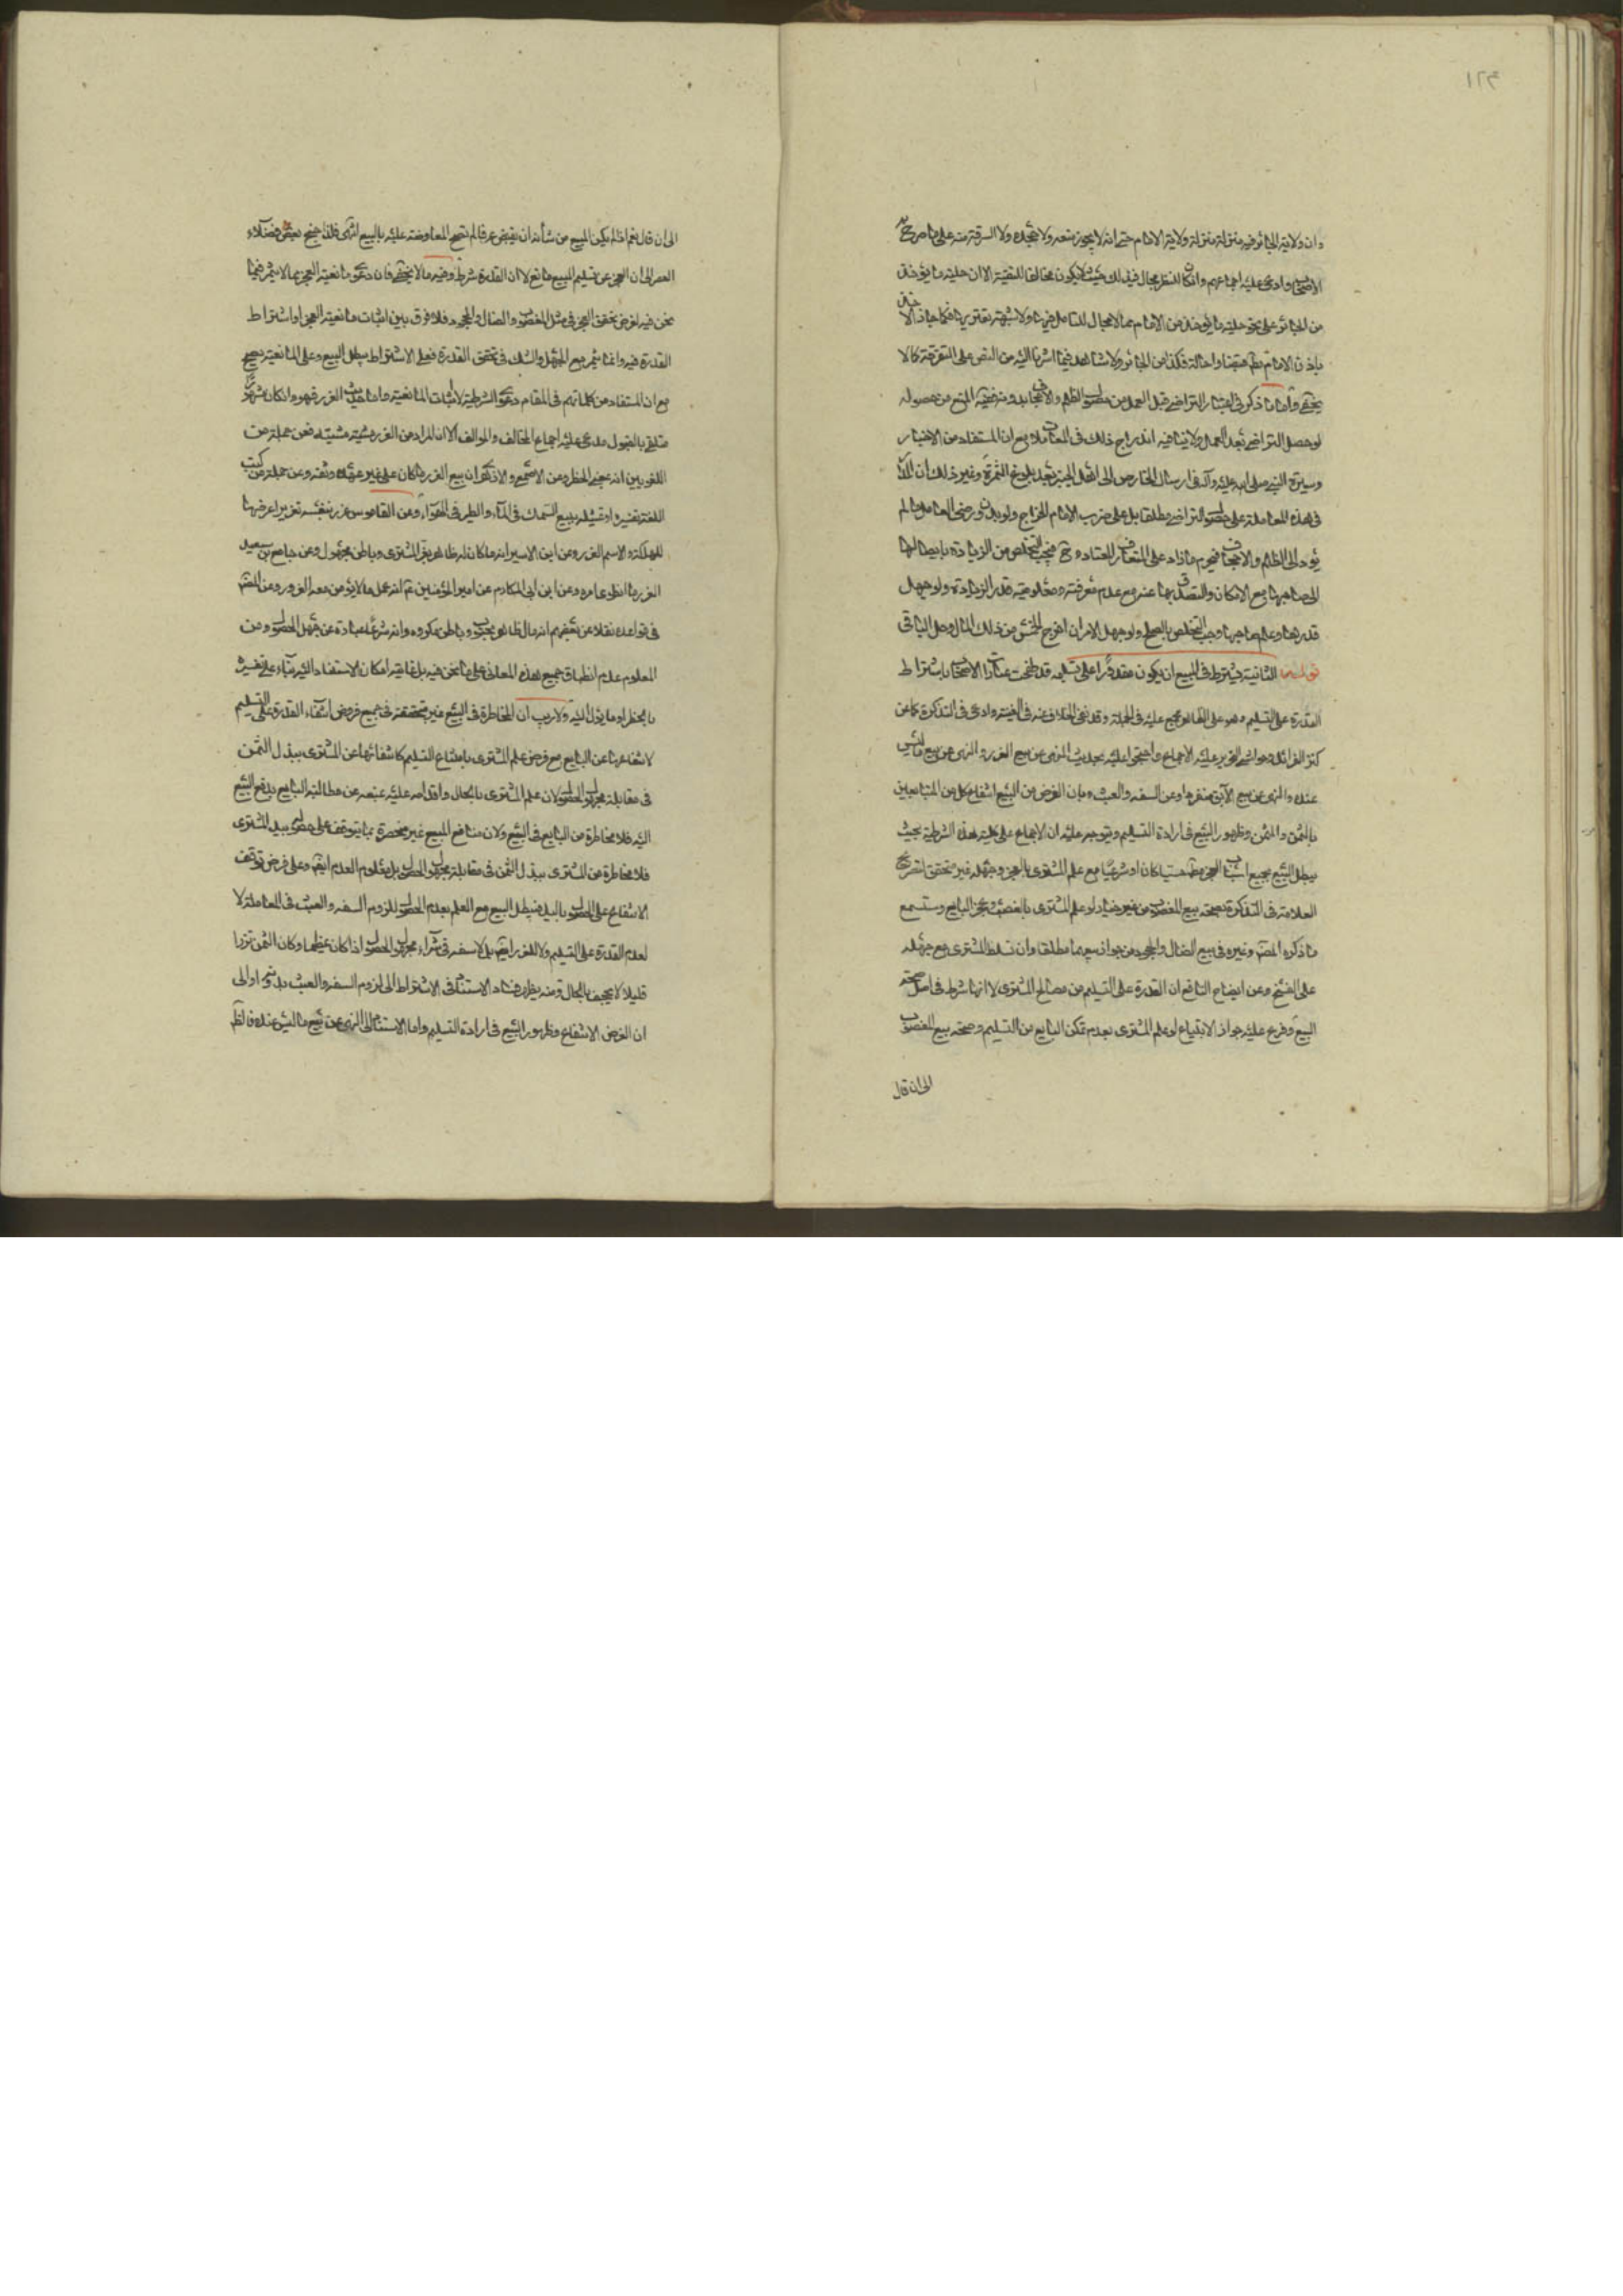 ١٢٤
وان ولاية الجائر فيه منزلة منزلة ولاية الامام حتى انه لا يجوز منعه ولا جحده ولا السرقة منه على ما صرح به
الاصحاب وادعى عليه اجماعهم وان كان للنظر مجال في ذلك بحيث لا يكون مخالفا للتقية الا ان حلية ما يؤخذ
من الجائر على نحو حلية ما يؤخذ من الامام مما لا مجال للتامل فيها ولا شبهة تعتريها فكما جاز الاخذ
باذن الامام فكذا من الجائر ولا شاهد فيما اشرنا اليه من النص على التفرقة كما لا
يخفى واما ما ذكر في اعتبار التراضي قبل العمل من حصول الظلم والاجحاف بدونه ففيه المنع من حصوله
لو حصل التراضي بعد العمل ولا ينافيه اندراج ذلك في المعاملات مع ان المستفاد من الاخبار
وسيرة النبي صلى الله عليه وآله في ارسال الخارص الى اهل الخيبر بعد بلوغ الثمرة وغير ذلك ان
في هذه المعاملة على حصول التراضي مطلقا بل على ضرب الامام الخراج ولو بدون رضى العامل ما لم
يؤد الى الظلم والاجحاف فيحرم ما زاد على المتعارف المعتاد وح فيجب التخلص من الزيادة بايصالها
الى صاحبها مع الامكان والتصدق بها عنه مع عدم معرفته ومعلومية قدر الزيادة ولو جهل
قدرها وعلم صاحبها وجب التخلص بالصلح ولو جهل الامران اخرج الخمس من ذلك المال وحل الباقي
قوله الثانية يشترط في المبيع ان يكون مقدورا على تسليمه قد طفحت عبارات الاصحاب باشتراط
القدرة على التسليم وهو على الظاهر مجمع عليه في الجملة وقد نفى الخلاف عنه في الغنية وادعى في التذكرة كما عن
كنز الفرائد وحواشي عليه الاجماع واحتجوا عليه بحديث النهي عن بيع الغرر والنهي عن بيع ما ليس
عنده والنهي عن بيع الآبق منفردا وعن السفه والعبث وبان الغرض من البيع انتفاع كل من المتبايعين
بالثمن والمثمن وظهور البيع في ارادة التسليم ويتوجه عليه ان الاجماع على كلية هذه الشرطية بحيث
يبطل البيع بجميع اسباب العجز حسيا كان او شرعيا مع علم المشتري بالعجز وجهله غير متحقق لتصريح
العلامة في التذكرة بصحة بيع المغصوب من غير خيار لو علم المشتري بالغصب وعجز البايع وستسمع
ما ذكره المصنف وغيره في بيع الضال والمجحود من جواز بيعهما مطلقا وان تسلط المشتري مع جهله
على الفسخ وعن ايضاح النافع ان القدرة على التسليم من مصالح المشتري لا انها شرط في اصل صحة
البيع وفرع عليه جواز الابتياع لو علم المشتري بعدم تمكن البايع من التسليم وصحة بيع المغصوب
الى ان قال
الى ان قال نعم اذا لم يكن المبيع من شأنه ان يقبض عرفا لم تصح المعاوضة عليه بالبيع انتهى فلذا جنح بعض فضلاء
العصر الى ان العجز عن تسليم المبيع مانع لا ان القدرة شرط وفيه ما لا يخفى فان دعوى مانعية العجز مما لا يثمر فيما
نحن فيه لفرض تحقق العجز في مثل المغصوب والضال والمجحود فلا فرق بين اثبات مانعية العجز او اشتراط
القدرة فيه وانما يثمر مع الجهل والشك في تحقق القدرة فعلى الاشتراط يبطل البيع وعلى المانعية يصح
مع ان المستفاد من كلماتهم في المقام دعوى الشرطية لا اثبات المانعية واما حديث الغرر فهو وان كان مشهورا
متلقى بالقبول مدعى عليه اجماع المخالف والموالف الا ان المراد من الغرر فعن جملة من
اللغويين انه بمعنى الخطر وعن الاصمعي والازهري ان بيع الغرر ما كان على غير عهدة وثقة وعن جملة من كتب
اللغة تفسيره او تمثيله ببيع السمك في الماء والطير في الهواء وعن القاموس غرر بنفسه تغريرا عرضها
للهلكة والاسم الغرر وعن ابن الاسير انه ما كان له ظاهر يغر المشتري وباطن مجهول وعن جامع بن سعيد
الغرر ما انطوى امره وعن ابن ابي المكارم عن امير المؤمنين ع انه عمل ما لا يؤمن معه الغرور وعن
في قواعده نقلا عن بعضهم انه مال ظاهره محبوب وباطنه مكروه وانه شرعا عبارة عن جهل الحصول ومن
المعلوم عدم انطباق جميع هذه المعاني على ما نحن فيه بل غايته امكان الاستناد اليه بناء على تفسيره
بالخطر او ما يؤل اليه ولا ريب ان المخاطرة في البيع غير متحققة في جميع فروض انتفاء القدرة على التسليم
لانتفائها عن البايع مع فرض علم المشتري بامتناع التسليم كانتفائها عن المشتري ببذل الثمن
في مقابلة مجهول الحصول لان علم المشتري بالحال واقدامه عليه يمنعه عن مطالبة البايع بدفع المبيع
اليه فلا مخاطرة من البايع في البيع ولان منافع المبيع غير منحصرة بما يتوقف على حصوله بيد المشتري
فلا مخاطرة من المشتري ببذل الثمن في مقابلة مجهول الحصول بل معلوم العدم ايضا وعلى فرض توقف
الانتفاع على الحصول باليد فيبطل البيع مع العلم بعدم الحصول للزوم السفه والعبث في المعاملة لا
لعدم القدرة على التسليم ولا للغرر ايضا بل لا سفه في شراء مجهول الحصول اذا كان عظيما وكان الثمن نزرا
قليلا لا يجحف بالحال ومنه يظهر فساد الاستناد في الاشتراط الى لزوم السفه والعبث بدونه او الى
ان الغرض الانتفاع وظهور البيع في ارادة التسليم واما الاستناد الى النهي عن بيع ما ليس عنده فالظاهر